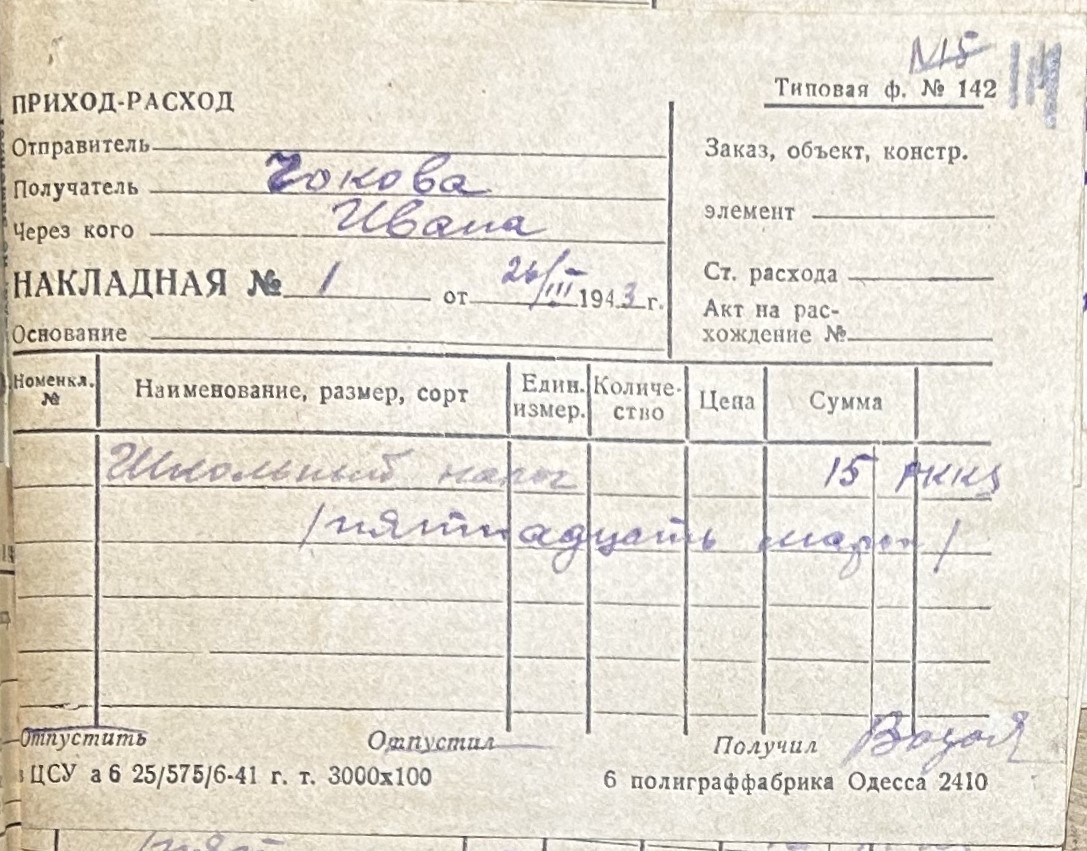 №15 114
ПРИХОД-РАСХОД
Типовая ф. № 142
Отправитель
Получатель Чокова
Через кого Ивана
НАКЛАДНАЯ № 1 от 26/III 1943 г.
Основание
Заказ, объект, констр.
элемент
Ст. расхода
Акт на рас-
хождение №
Номенкл. №
Наименование, размер, сорт
Един. измер.
Количе-ство
Цена
Сумма
Школьный налог 15 РККS
/пятнадцать марок/
Отпустить Отпустил Получил
ЦСУ а 6 25/575/6-41 г. т. 3000х100 6 полиграффабрика Одесса 2410